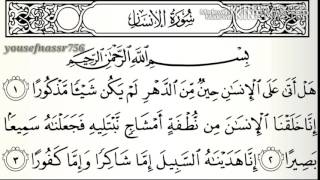 سُورَةُ الْإِنسَانِ
yousefnassr756
بِسْمِ اللَّهِ الرَّحْمَٰنِ الرَّحِيمِ
هَلْ أَتَىٰ عَلَى الْإِنسَانِ حِينٌ مِّنَ الدَّهْرِ لَمْ يَكُن شَيْئًا مَّذْكُورًا ١
إِنَّا خَلَقْنَا الْإِنسَانَ مِن نُّطْفَةٍ أَمْشَاجٍ نَّبْتَلِيهِ فَجَعَلْنَاهُ سَمِيعًا
بَصِيرًا ٢ إِنَّا هَدَيْنَاهُ السَّبِيلَ إِمَّا شَاكِرًا وَإِمَّا كَفُورًا ٣